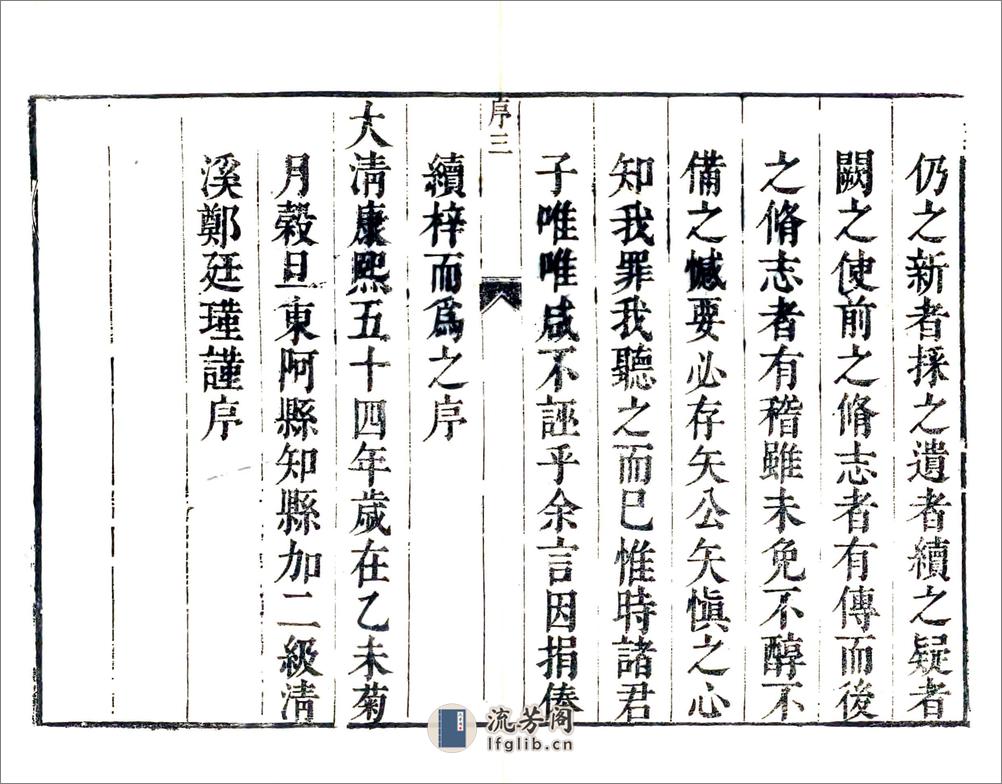 仍之新者採之遺者續之疑者
闕之使前之脩志者有傳而後
之脩志者有稽雖未免不醇不
備之憾要必存矢公矢愼之心
知我罪我聽之而已惟時諸君
子唯唯咸不誣乎余言因捐俸
續梓而爲之序
序三
大淸康熙五十四年歲在乙未菊
月穀旦東阿縣知縣加二級淸
溪鄭廷瑾謹序
流芳阁
lfglib.cn